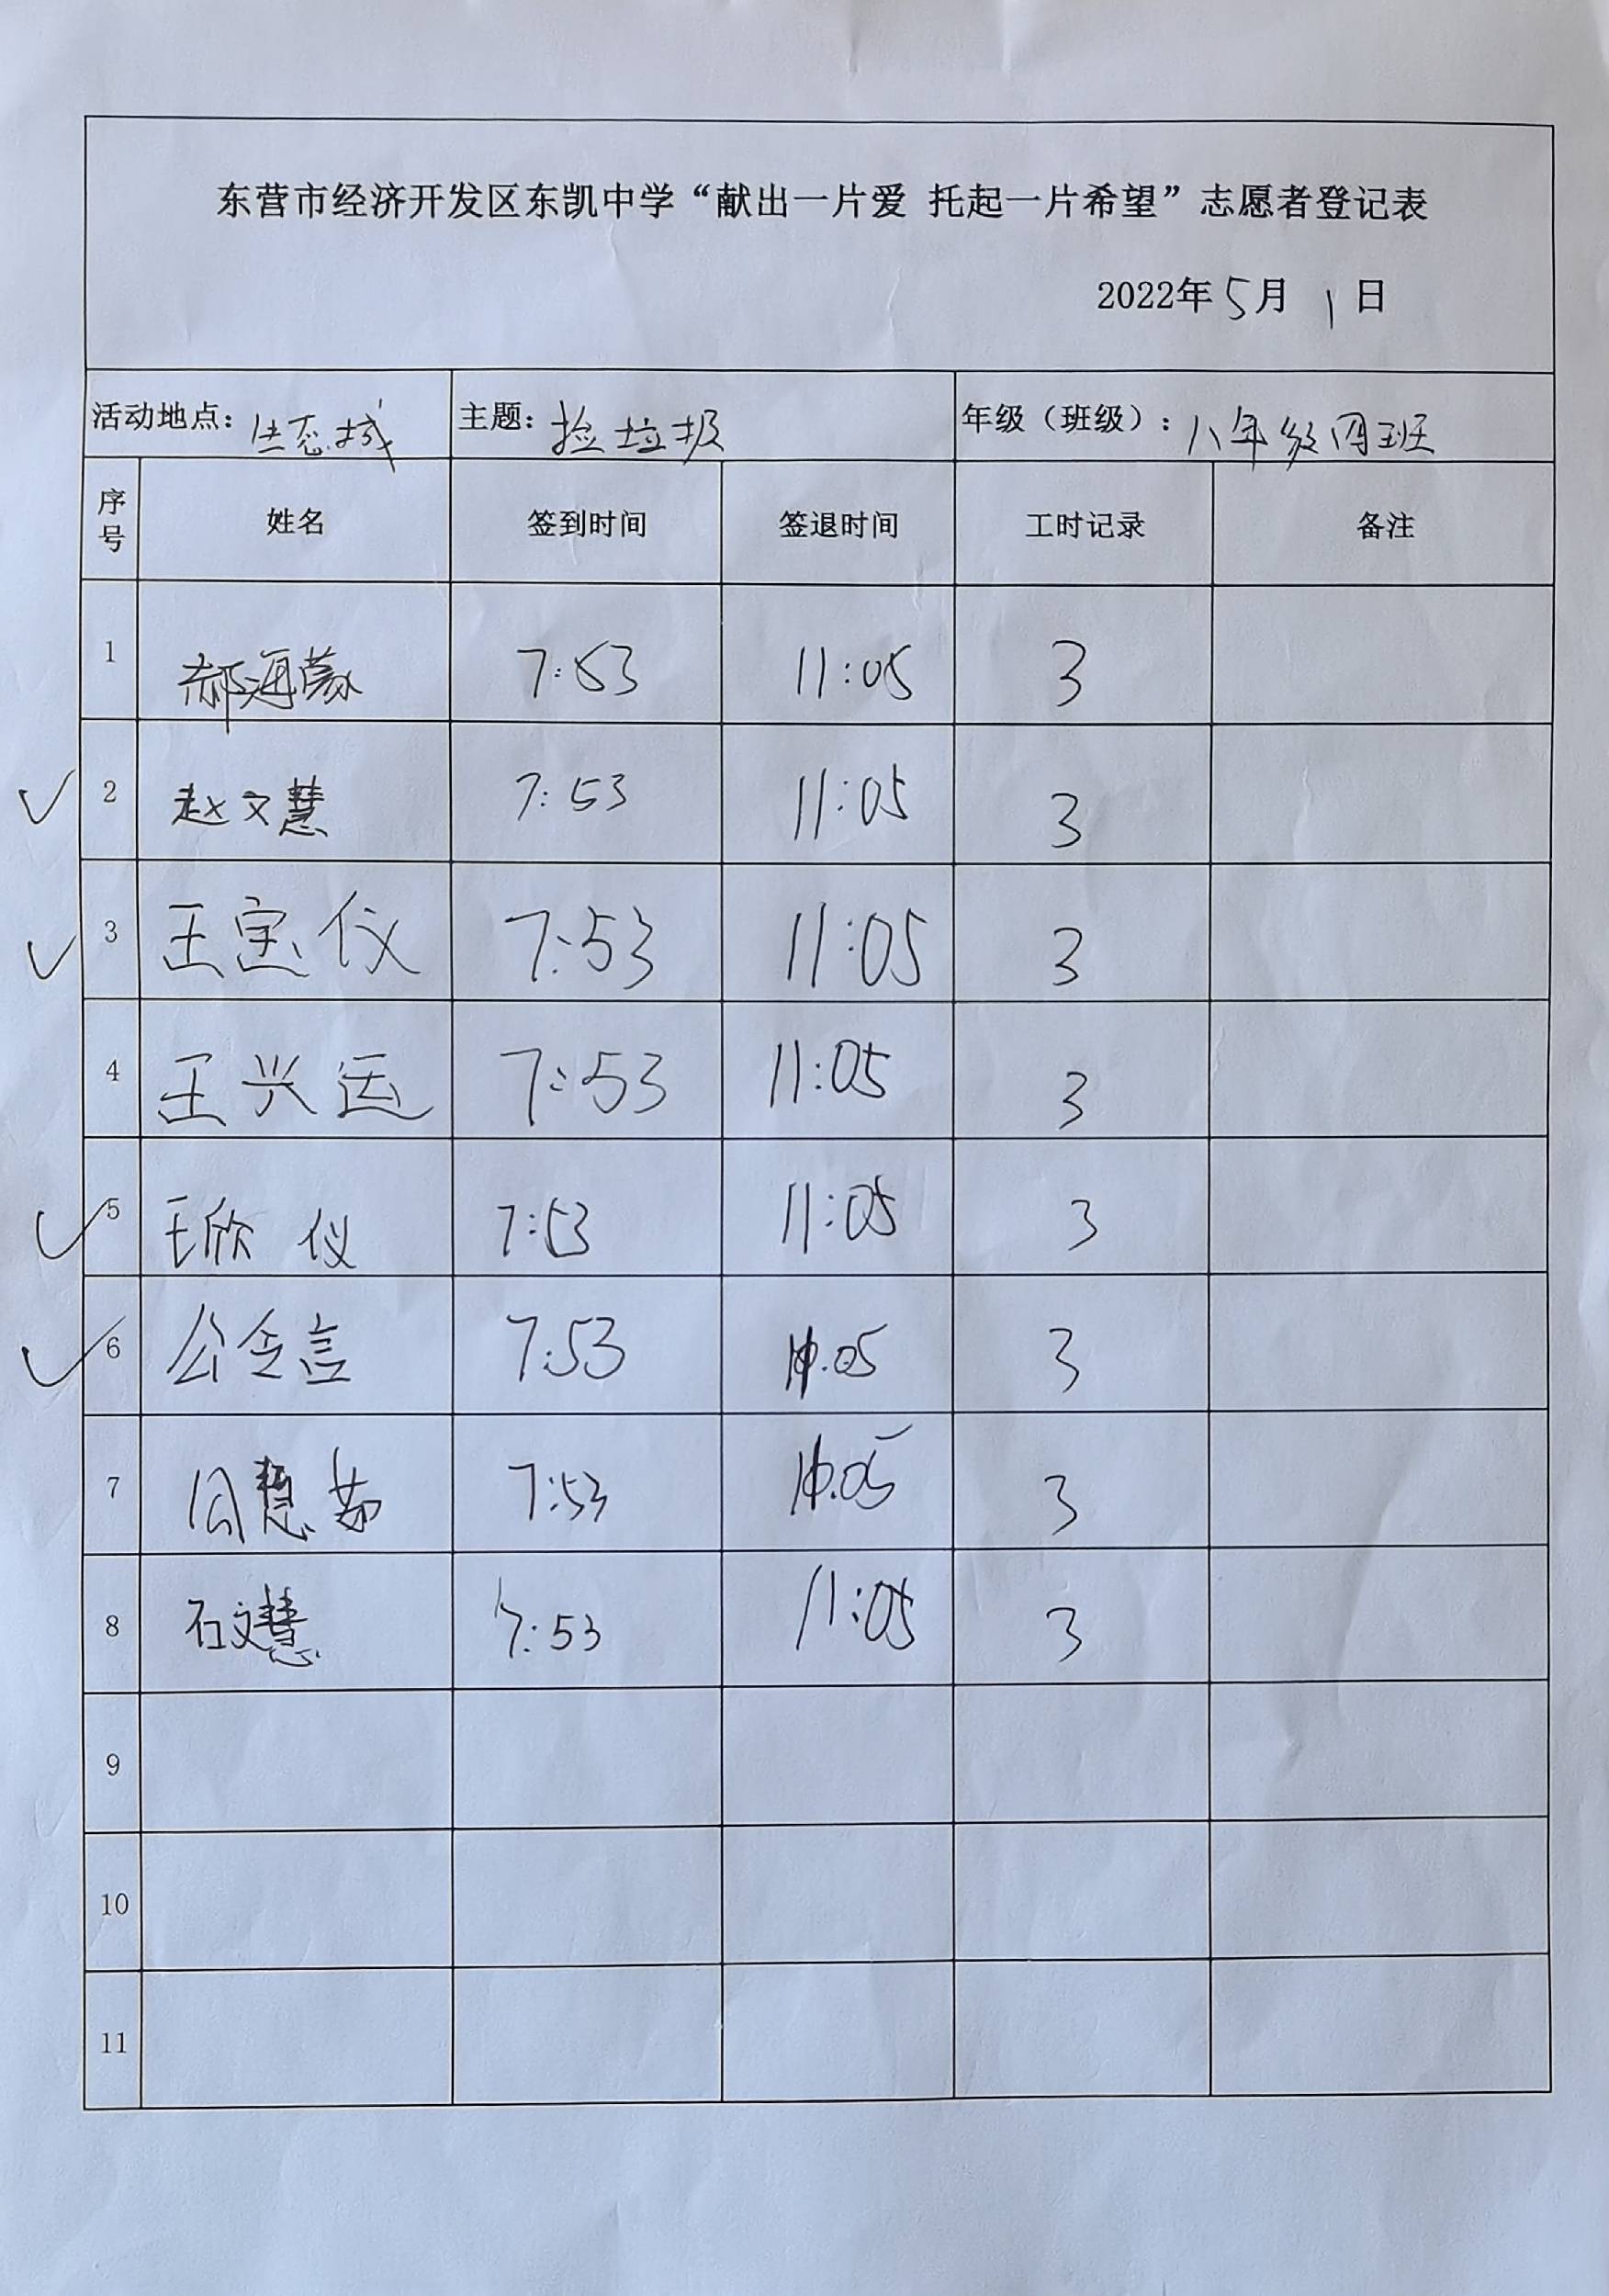 东营市经济开发区东凯中学“献出一片爱 托起一片希望”志愿者登记表
2022年5月1日
活动地点：生态城 主题：捡垃圾 年级（班级）：八年级四班
序号 姓名 签到时间 签退时间 工时记录 备注
1 郝海蒙 7:53 11:05 3
2 赵文慧 7:53 11:05 3
3 王宝仪 7:53 11:05 3
4 王兴运 7:53 11:05 3
5 王欣仪 7:53 11:05 3
6 公令言 7:53 11:05 3
7 周慧茹 7:53 11:05 3
8 石文慧 7:53 11:05 3
9
10
11